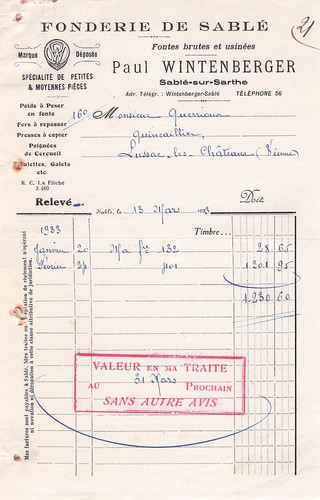 FONDERIE DE SABLÉ
21
Marque Déposée
SPÉCIALITÉ DE PETITES
& MOYENNES PIÈCES
Fontes brutes et usinées
PAUL WINTENBERGER
Sablé-sur-Sarthe
Adr. Télégr. : Wintenberger-Sablé TÉLÉPHONE 56
Poids à Peser
en fonte
Fers à repasser
Presses à copier
Poignées
de Cercueil
Roulettes, Galets
etc.
R. C. La Flèche
160 Monsieur
Quincaillier,
Lussac-les-Châteaux (Vienne)
Relevé Sablé, le 13 Mars 1933 Doit
1933 Timbre...
Janvier 20 Ma fre 132 28 65
Février 24 1201 95
1.230 60
VALEUR EN MA TRAITE
AU 31 Mars PROCHAIN
SANS AUTRE AVIS
Mes factures sont payables à Sablé. Mes traites ou l'acceptation de règlement n'opèrent
ni novation ni dérogation à cette clause attributive de juridiction.